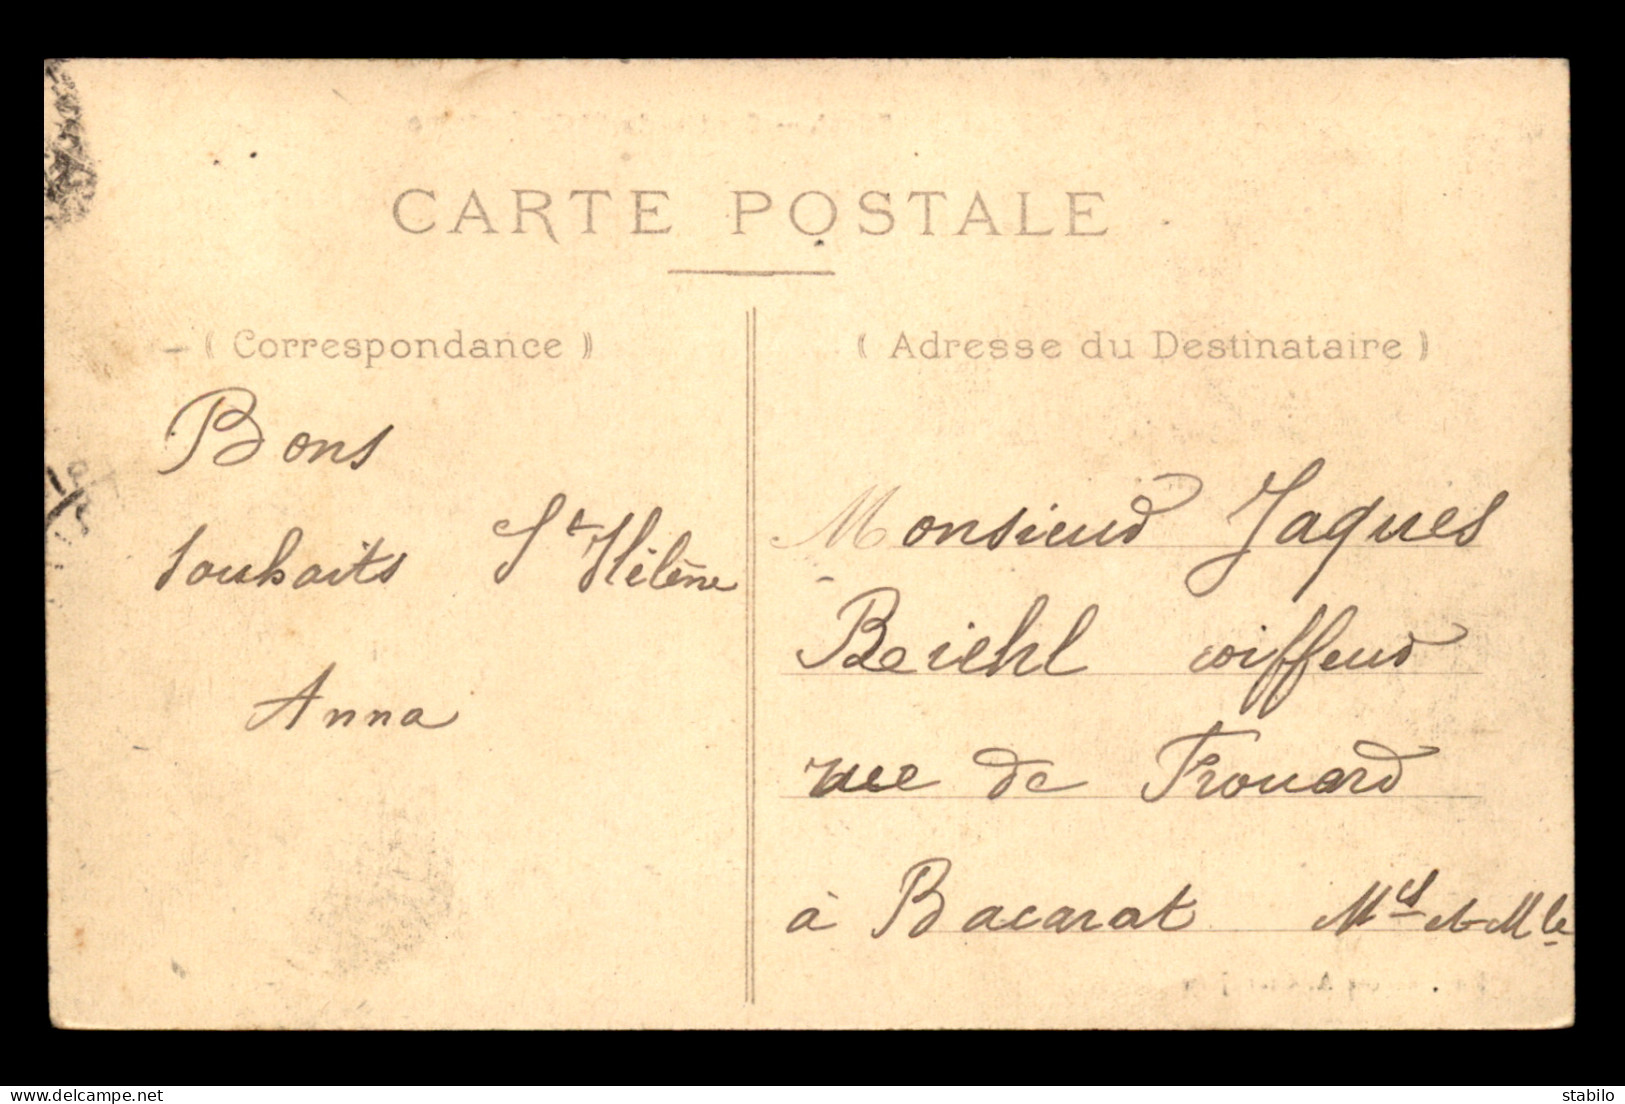 CARTE POSTALE
( Correspondance )
Bons
souhaits Ste Hélène
Anna
( Adresse du Destinataire )
Monsieur Jaques
Beichl coiffeur
rue de Frouard
à Bacarat Mthe et Mlle
delcampe.net
stabilo